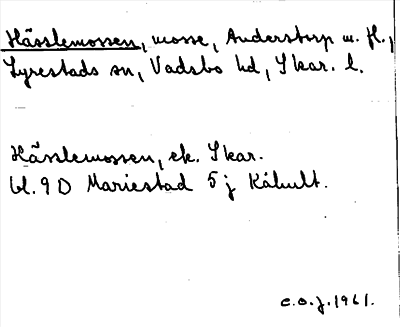 Hässlemossen, mosse, Anderstorp m. fl.,
Lyrestads sn, Vadsbo hd, Skar. l.
Hässlemossen, ek. Skar.
bl. 9D Mariestad 5 j Kåhult.
c.o.j. 1961.